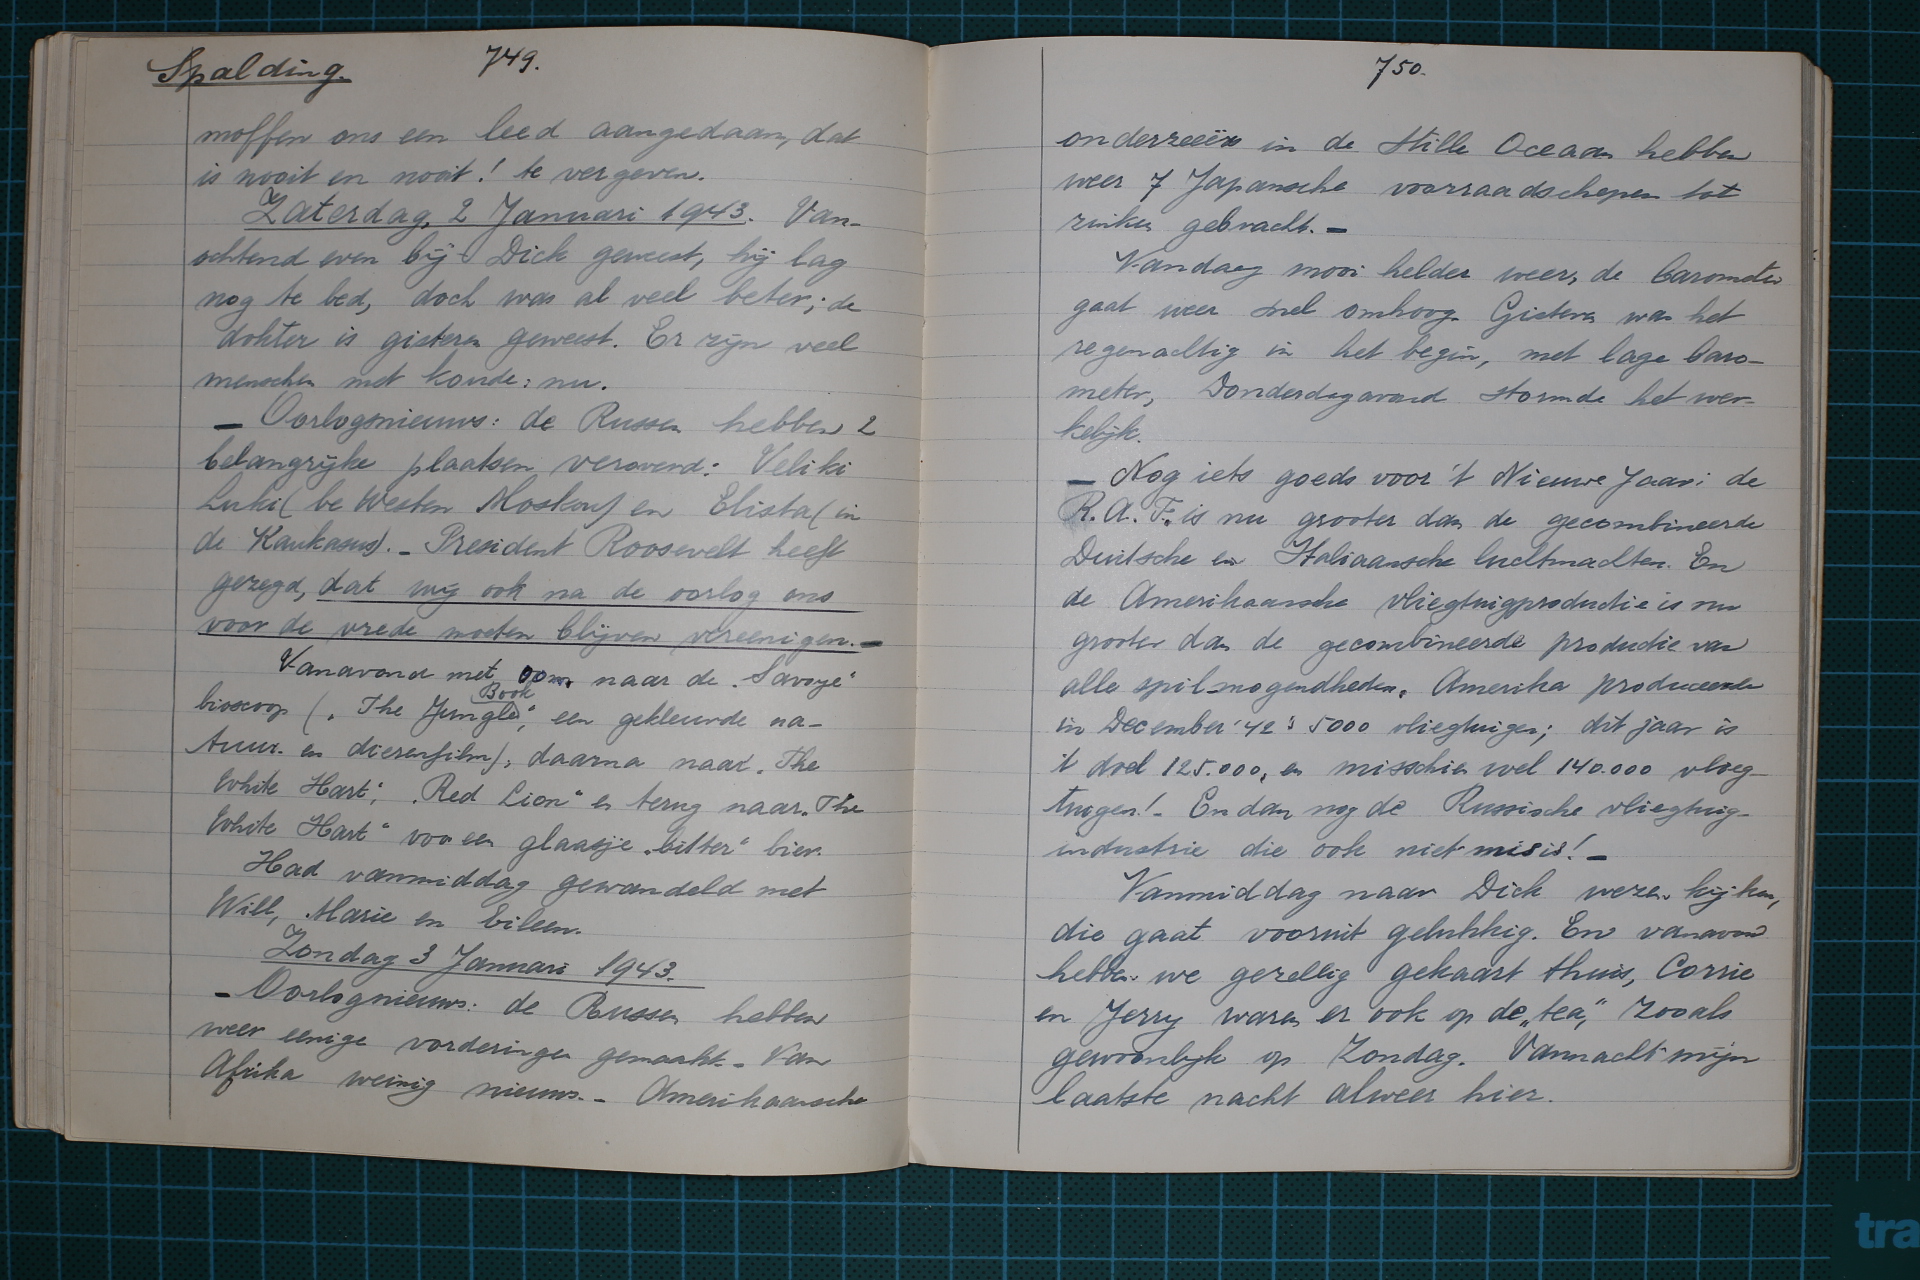 Spalding.
749.
moffen ons een leed aangedaan, dat
is nooit en nooit! te vergeven.
Zaterdag, 2 Januari 1943. Van-
ochtend even bij Dick geweest, hij lag
nog te bed, doch was al veel beter; de
dokter is gisteren geweest. Er zijn veel
menschen met koude: nu.
— Oorlogsnieuws: de Russen hebben 2
belangrijke plaatsen veroverd: Veliki
Luki (be Westen Moskou) en Elista (in
de Kaukasus). - President Roosevelt heeft
gezegd, dat wij ook na de oorlog ons
voor de vrede moeten blijven vereenigen. —
Vanavond met oom naar de „Savoye“
bioscoop („The Jungle Book“, een gekleurde na-
tuur- en dierenfilm), daarna naar „The
White Hart“, „Red Lion“ en terug naar „The
White Hart“ voor een glaasje „bitter“ bier.
Had vanmiddag gewandeld met
Will, Marie en Eileen.
Zondag 3 Januari 1943.
— Oorlognieuws: de Russen hebben
weer eenige vorderingen gemaakt. - Van
Afrika weinig nieuws. - Amerikaansche
750.
onderzeeërs in de Stille Oceaan hebben
weer 7 Japansche voorraadschepen tot
zinken gebracht. —
Vandaag mooi helder weer, de barometer
gaat weer snel omhoog. Gisteren was het
regenachtig in het begin, met lage baro-
meter, Donderdagavond stormde het wer-
kelijk.
— Nog iets goeds voor 't Nieuwe Jaar: de
R.A.F. is nu grooter dan de gecombineerde
Duitsche en Italiaansche luchtmachten. En
de Amerikaansche vliegtuigproductie is nu
grooter dan de gecombineerde productie van
alle spilmogendheden. Amerika produceerde
in December '42: 5000 vliegtuigen; dit jaar is
't doel 125.000, en misschien wel 140.000 vlieg-
tuigen! - En dan nog de Russische vliegtuig-
industrie die ook niet mis is! —
Vanmiddag naar Dick wezen kijken,
die gaat vooruit gelukkig. En vanavond
hebben we gezellig gekaart thuis, Corrie
en Jerry waren er ook op de „tea“, zooals
gewoonlijk op Zondag. Vannacht mijn
laatste nacht alweer hier.
tra